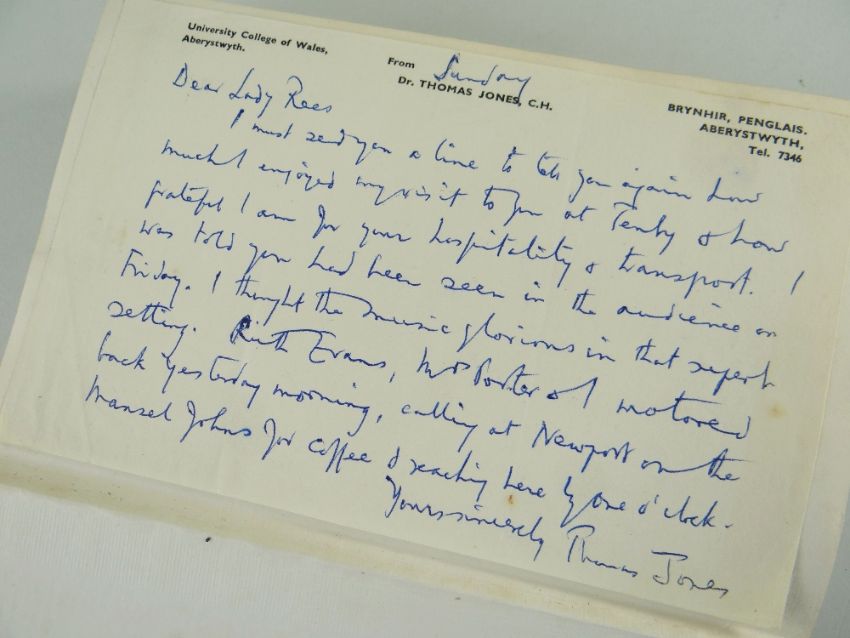 University College of Wales,
Aberystwyth.
From Sunday
Dr. THOMAS JONES, C.H.
BRYNHIR, PENGLAIS.
ABERYSTWYTH,
Tel. 7346
Dear Lady Rees
I must send you a line to tell you again how
much I enjoyed my visit to you at Tenby & how
grateful I am for your hospitality & transport. I
was told you had been seen in the audience on
Friday. I thought the music glorious in that superb
setting. Ruth Evans, Mrs Porter & I motored
back yesterday morning, calling at Newport on the
Mansel Johns for coffee & reaching here by one o'clock.
Yours sincerely Thomas Jones